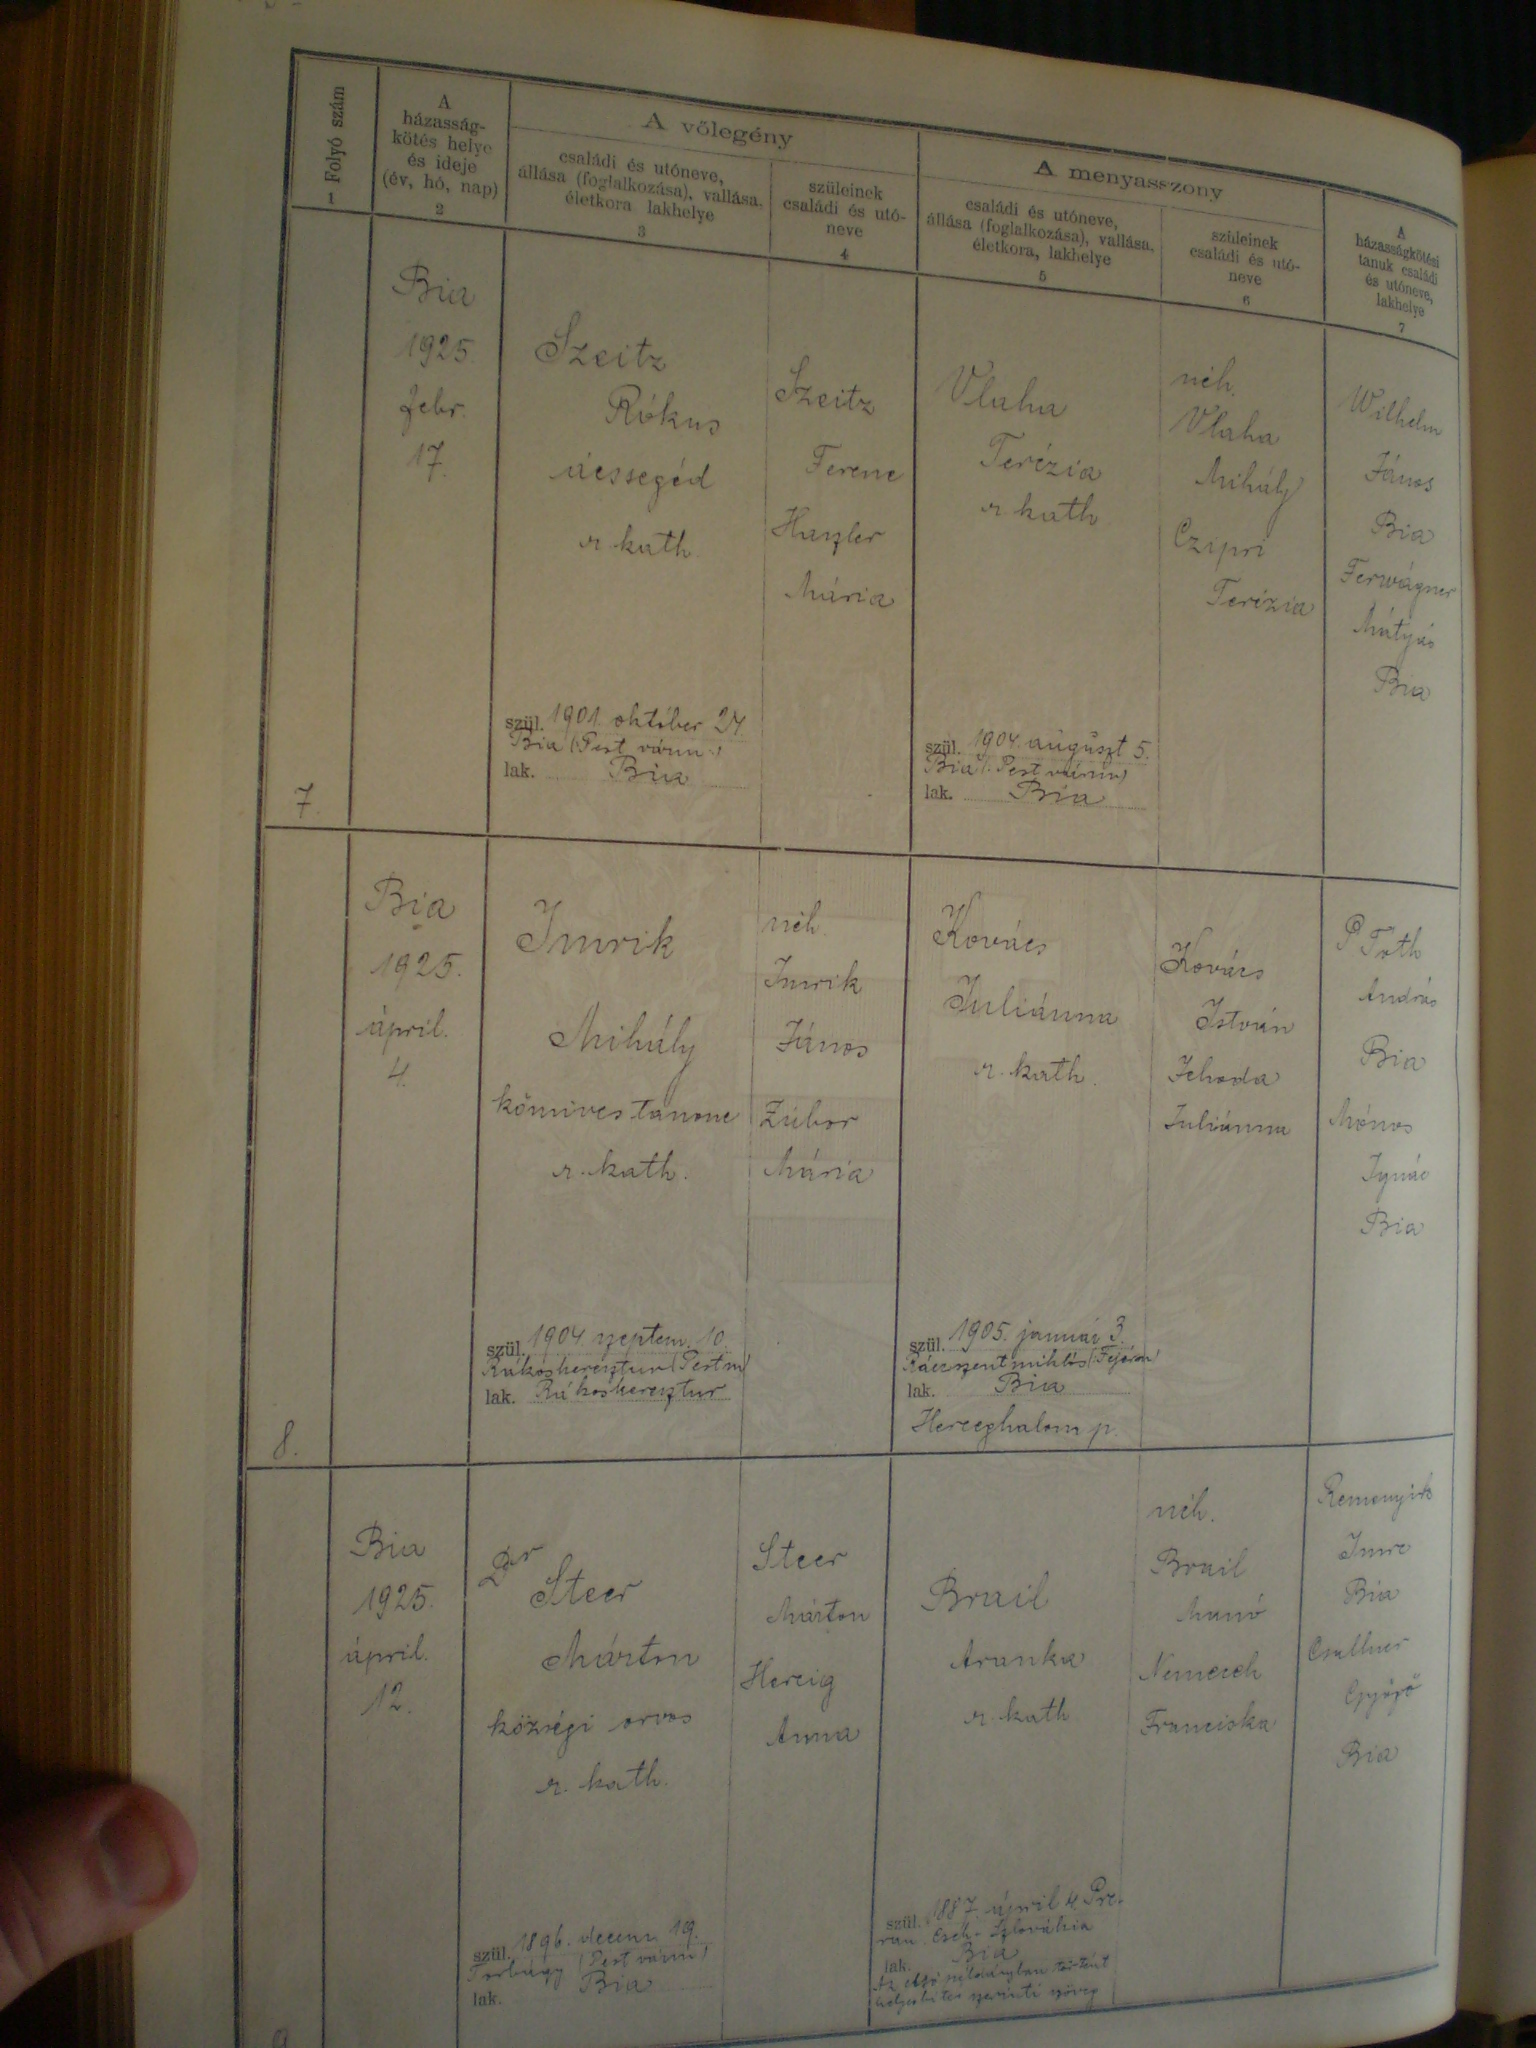 1 Folyó szám
A
házasság-
kötés helye
és ideje
(év, hó, nap)
2
A vőlegény
családi és utóneve,
állása (foglalkozása), vallása,
életkora lakhelye
3
szüleinek
családi és utó-
neve
4
A menyasszony
családi és utóneve,
állása (foglalkozása), vallása,
életkora, lakhelye
5
szüleinek
családi és utó-
neve
6
A
házasságkötési
tanuk családi
és utóneve,
lakhelye
7
7.
Bia
1925.
febr.
17.
Szeitz
Rókus
ácssegéd
r. kath.
szül. 1901. október 24.
Bia (Pest várm.)
lak. Bia
Szeitz
Ferenc
Haszler
Mária
Vlaha
Terézia
r. kath
szül. 1904. auguszt 5.
Bia (Pest várm)
lak. Bia
néh.
Vlaha
Mihály
Czipri
Terézia
Wilhelm
János
Bia
Ferwágner
Mátyás
Bia
8.
Bia
1925.
ápril.
4.
Imrik
Mihály
kőmives tanonc
r. kath.
szül. 1904. szeptem. 10.
Rákoskeresztur (Pest m)
lak. Rákoskeresztur
néh.
Imrik
János
Zubor
Mária
Kovács
Juliánna
r. kath.
szül. 1905. január 3.
Ráczszentmiklós (Fejérm)
lak. Bia
Herceghalom p.
Kovács
István
Jehoda
Juliánna
P Toth
András
Bia
Mónos
Ignác
Bia
9
Bia
1925.
ápril.
12.
Dr
Steer
Márton
községi orvos
r. kath.
szül. 1896. decem. 19.
Torbágy (Pest várm)
lak. Bia
Steer
Márton
Herzig
Anna
Brail
Aranka
r. kath
szül. 1887. ápril 4 Pre-
rau Cseh-Szlovákia
lak. Bia
Az első példányban történt
helyesbítés szerinti szöveg
néh.
Brail
Manó
Nemecsek
Franciska
Imre
Bia
Csallner
Győző
Bia